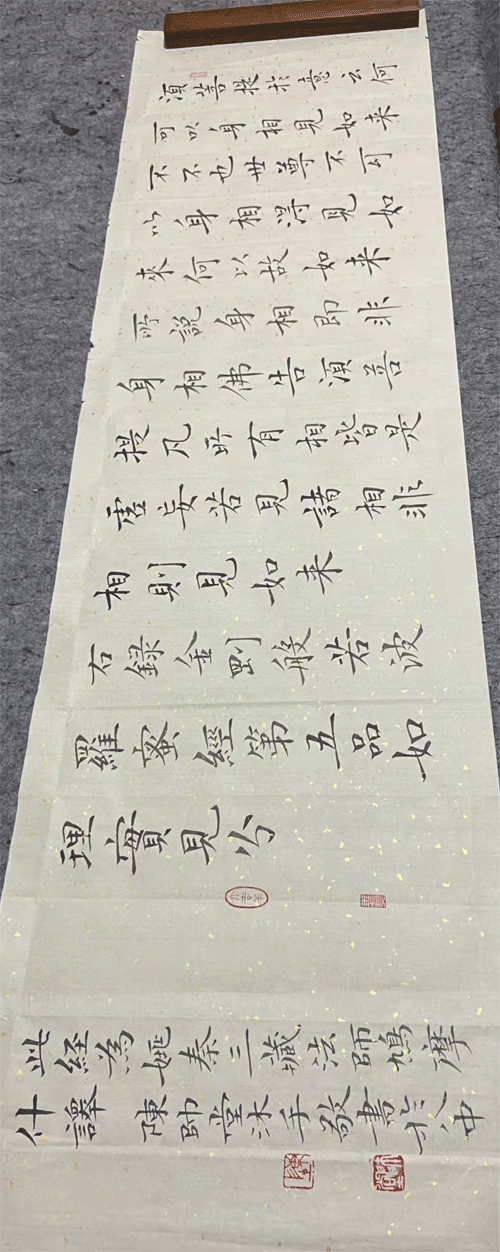 須菩提於意云何
可以身相見如来
不不也世尊不可
以身相得見如
來何以故如来
所說身相即非
身相佛告須菩
提凡所有相皆是
虛妄若見諸相非
相則見如来
右録金剛般若波
羅蜜經第五品如
理實見分
此経為姚秦三藏法師鳩摩
什譯 陳帥堂沐手敬書於中